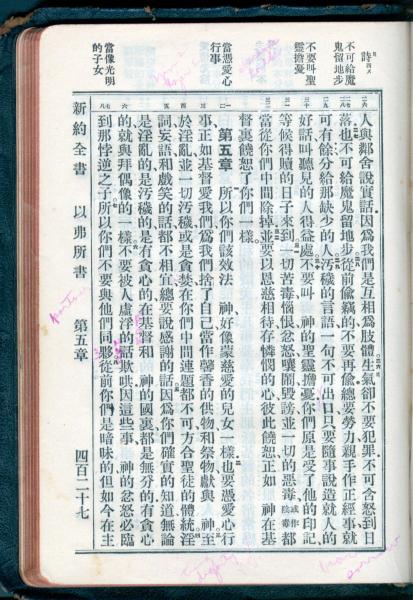 詩四
不可給魔
鬼留地步
不要叫聖
靈擔憂
當憑愛心
行事
當像光明
的子女
人與鄰舍說實話因爲我們是互相爲肢體生氣卻不要犯罪不可含怒到日
落也不可給魔鬼留地步從前偷竊的不要再偷總要勞力親手作正經事就
可有餘分給那缺少的人汚穢的言語一句不可出口只要隨事說造就人的
好話叫聽見的人得益處不要叫 神的聖靈擔憂你們原是受了他的印記
等候得贖的日子來到一切苦毒惱恨忿怒嚷鬧毀謗並一切的惡毒或作陰毒都
當從你們中間除掉並要以恩慈相待存憐憫的心彼此饒恕正如 神在基
督裏饒恕了你們一樣
第五章 所以你們該效法 神好像蒙慈愛的兒女一樣也要憑愛心行
事正如基督愛我們爲我們捨了自己當作馨香的供物和祭物獻與 神至
於淫亂並一切汚穢或是貪婪在你們中間連題都不可方合聖徒的體統淫
詞妄語和戲笑的話都不相宜總要說感謝的話因爲你們確實的知道無論
是淫亂的是汚穢的是有貪心的在基督和 神的國裏都是無分的有貪心
的就與拜偶像的一樣不要被人虛浮的話欺哄因這些事 神的忿怒必臨
到那悖逆之子所以你們不要與他們同夥從前你們是暗昧的但如今在主
新約全書 以弗所書 第五章 四百二十七